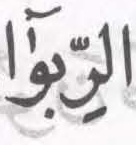 الرِّبَوٰٓا